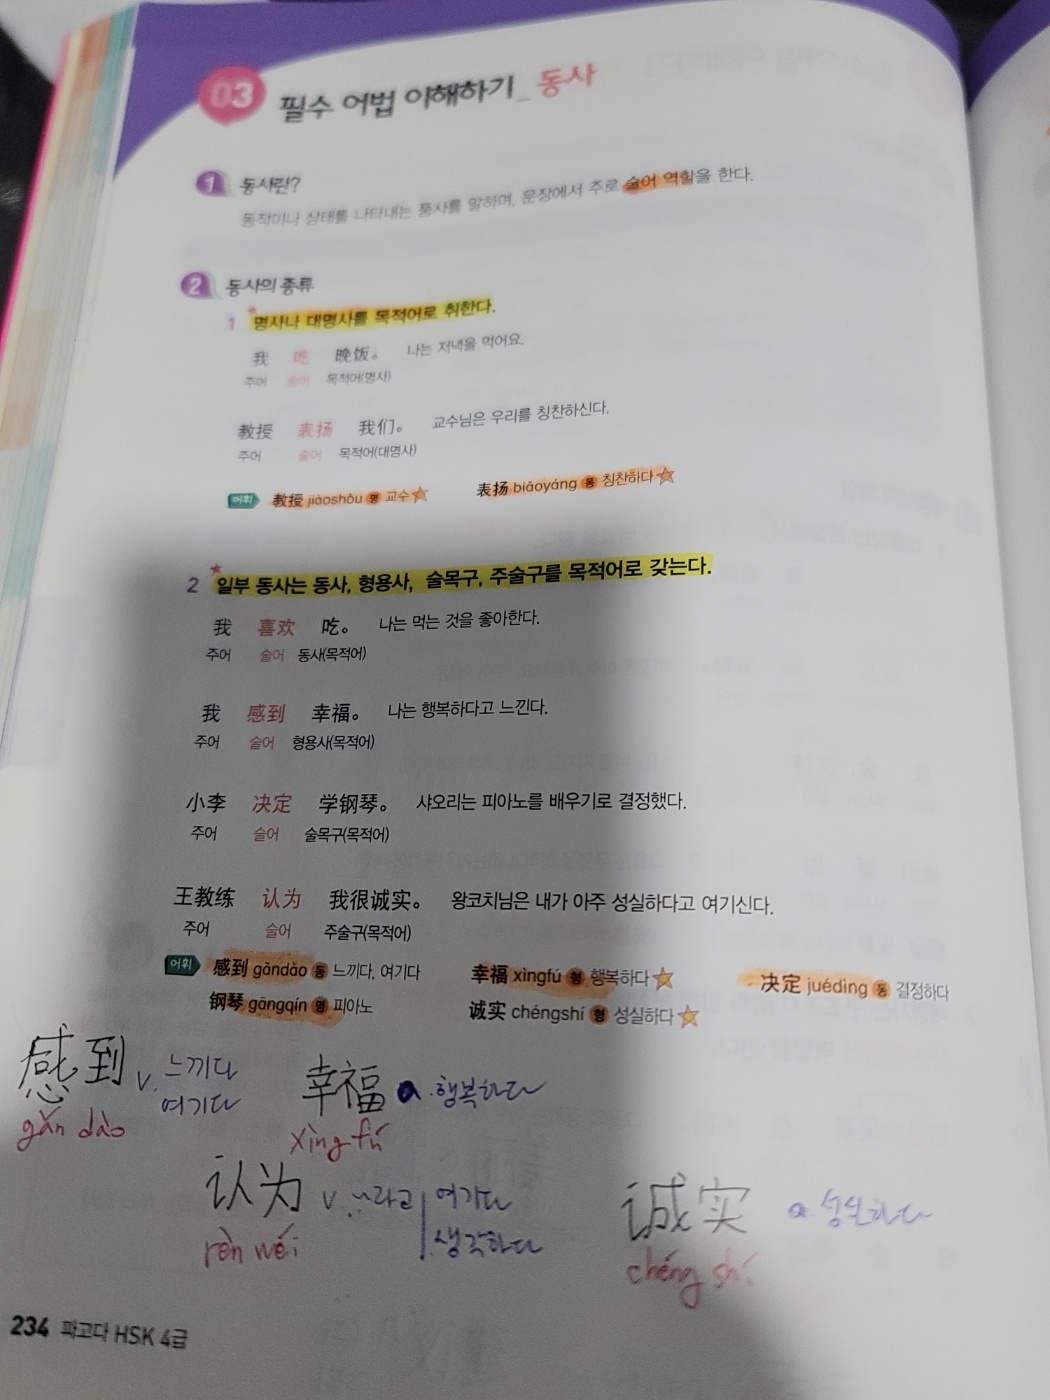 03 필수 어법 이해하기_ 동사
1 동사란?
동작이나 상태를 나타내는 품사를 말하며, 문장에서 주로 술어 역할을 한다.
2 동사의 종류
1 명사나 대명사를 목적어로 취한다.
我 吃 晚饭。 나는 저녁을 먹어요.
주어 술어 목적어(명사)
教授 表扬 我们。 교수님은 우리를 칭찬하신다.
주어 술어 목적어(대명사)
어휘 教授 jiàoshòu 명 교수☆ 表扬 biǎoyáng 동 칭찬하다☆
2 일부 동사는 동사, 형용사, 술목구, 주술구를 목적어로 갖는다.
我 喜欢 吃。 나는 먹는 것을 좋아한다.
주어 술어 동사(목적어)
我 感到 幸福。 나는 행복하다고 느낀다.
주어 술어 형용사(목적어)
小李 决定 学钢琴。 샤오리는 피아노를 배우기로 결정했다.
주어 술어 술목구(목적어)
王教练 认为 我很诚实。 왕코치님은 내가 아주 성실하다고 여기신다.
주어 술어 주술구(목적어)
어휘 感到 gǎndào 동 느끼다, 여기다 幸福 xìngfú 형 행복하다☆ 决定 juédìng 동 결정하다
钢琴 gāngqín 명 피아노 诚实 chéngshí 형 성실하다☆
感到 v. 느끼다
여기다
gǎn dào
幸福 a. 행복하다
xìng fú
认为 v. ~라고 여기다
생각하다
rèn wéi
诚实 a. 성실하다
chéng shí
234 파고다 HSK 4급